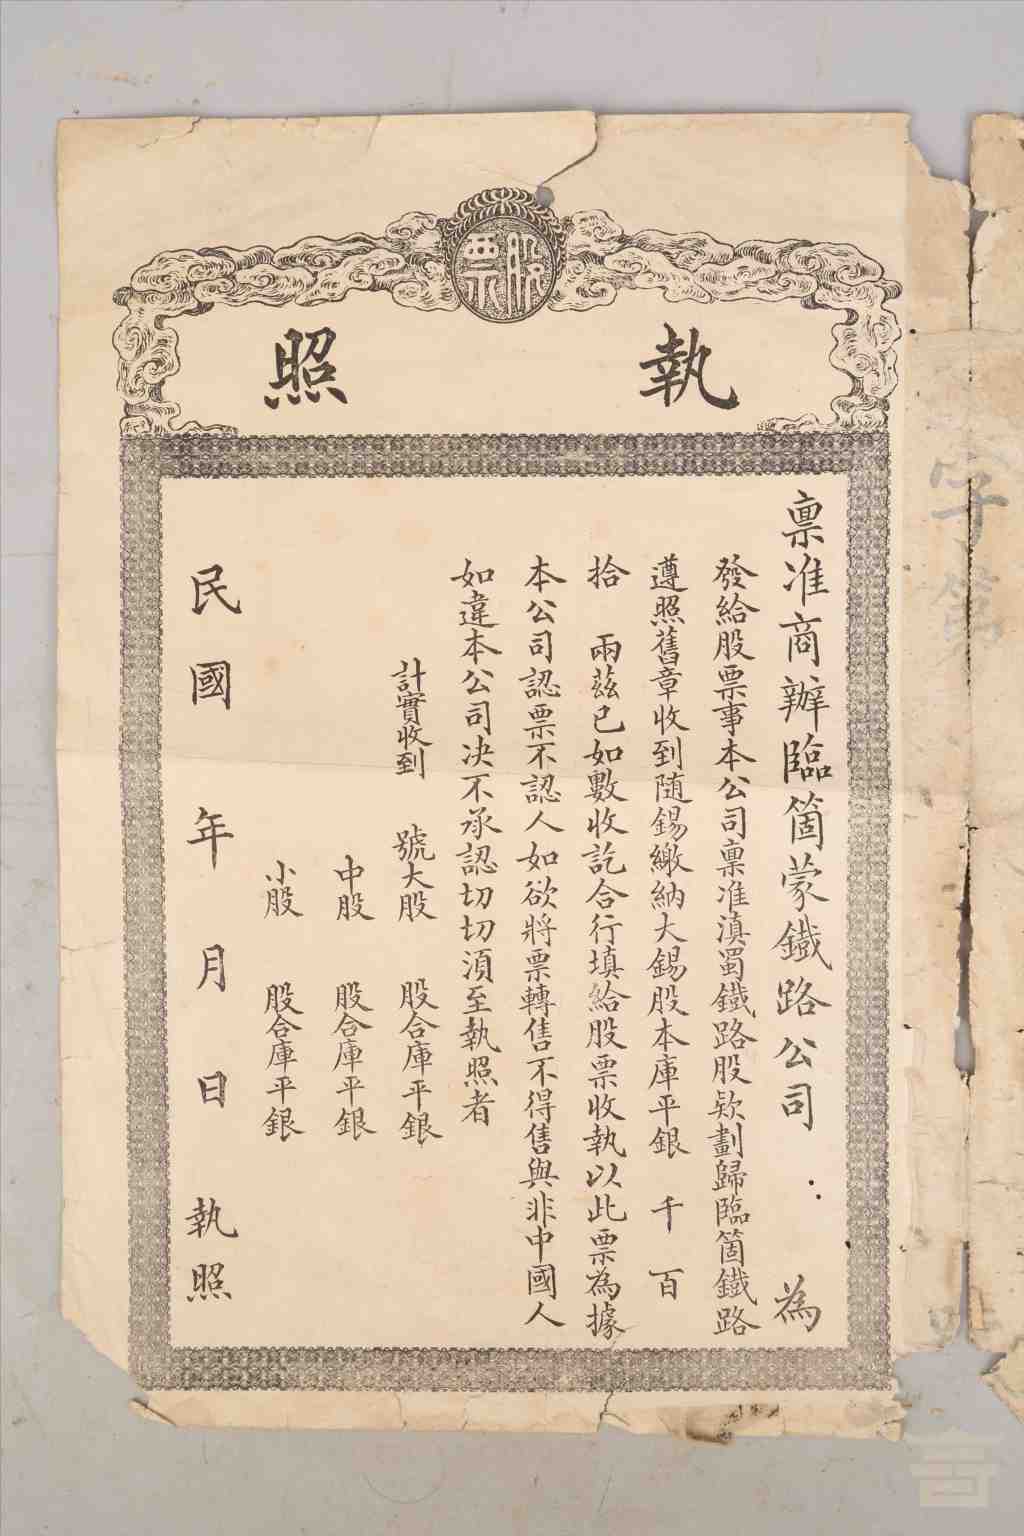 股票
執照
稟准商辦臨箇蒙鐵路公司 為
發給股票事本公司稟准滇蜀鐵路股欵劃歸臨箇鐵路
遵照舊章收到随錫繳納大錫股本庫平銀 千 百
拾 兩茲已如數收訖合行填給股票收執以此票為據
本公司認票不認人如欲將票轉售不得售與非中國人
如違本公司决不承認切切須至執照者
計實收到 號大股 股合庫平銀
中股 股合庫平銀
小股 股合庫平銀
民國 年 月 日 執照
字第